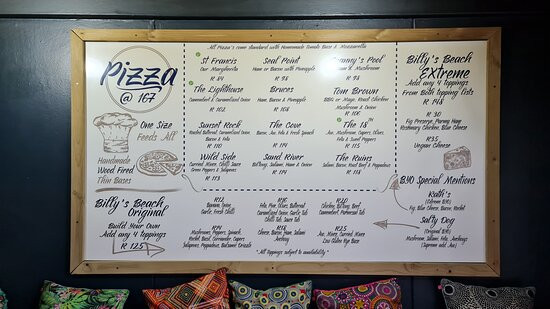 Pizza
@ 167
One Size
Feeds All
Handmade
Wood Fired
Thin Bases
Billy's Beach
Original
Build Your Own
Add any 4 toppings
R 125
All Pizza's come standard with Homemade Tomato Base & Mozzarella
St Francis
Our Margherita
R 84
Seal Point
Ham or Bacon with Pineapple
R 94
Granny's Pool
Ham & Mushroom
R 94
The Lighthouse
Camembert & Caramelised Onion
R 102
Bruces
Ham, Bacon & Pineapple
R 108
Tom Brown
BBQ or Mayo, Roast Chicken
Mushroom & Onion
R 108
Sunset Rock
Roasted Butternut, Caramelised Onion,
Bacon & Feta
R 110
The Cove
Bacon, Avo, Feta & Fresh Spinach
R 114
The 18th
Avo, Mushroom, Capers, Olives,
Feta & Sweet Peppers
R 115
Wild Side
Curried Mince, Chilli Sauce
Green Peppers & Jalapenos
R 113
Sand River
Biltong, Salami, Ham & Onion
R 114
The Ruins
Salami, Bacon, Roast Beef & Peppadews
R 118
R12
Banana, Onion,
Garlic, Fresh Chilli
R16
Feta, Pine, Olives, Butternut
Caramelised Onion, Garlic Tub
Chilli Tub, Sauce Tub
R20
Chicken, Biltong, Beef,
Camembert, Parmesan Tub
R14
Mushrooms, Peppers, Spinach,
Rocket, Basil, Coriander, Capers
Jalapenos, Peppadews, Balsamic
R18
Cheese, Bacon, Ham, Salami
Anchovy
R25
Avo, Mince, Curried Mince
Low Gluten Rye Base
*All toppings subject to availability*
Billy's Beach
Extreme
Add any 4 toppings
From Both Topping Lists
R 148
R 30
Fig Preserve, Parma Ham
Rosemary Chicken, Blue Cheese
R35
Vegan Cheese
BYO Special Mentions
Kath's
Fig, Blue Cheese, Bacon, Rocket
Salty Dog
(Original BYO)
Mushroom, Salami, Feta, Anchovy
(Supreme add Avo)